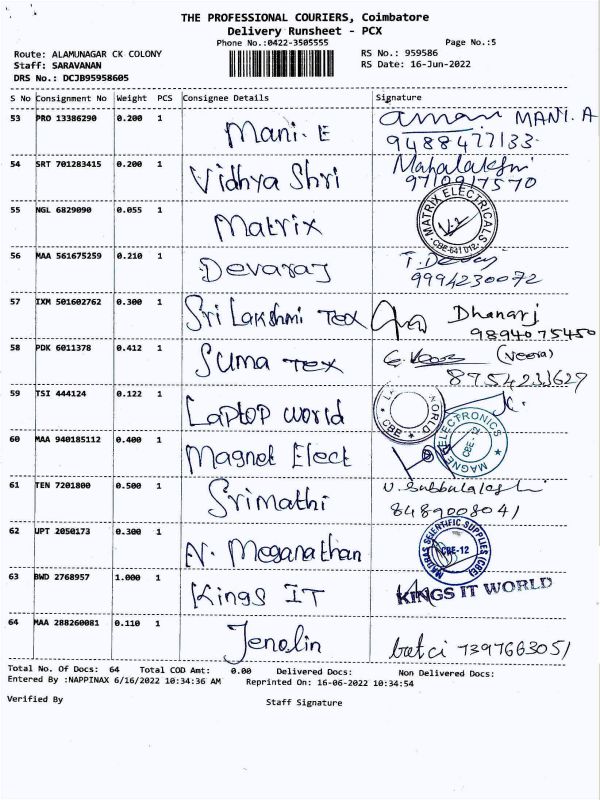 THE PROFESSIONAL COURIERS, Coimbatore
Delivery Runsheet - PCX
Phone No.:0422-3505555 Page No.:5
Route: ALAMUNAGAR CK COLONY RS No.: 959586
Staff: SARAVANAN RS Date: 16-Jun-2022
DRS No.: DCJB95958605
S No Consignment No Weight PCS Consignee Details Signature
53 PRO 13386290 0.200 1 Mani. E MANI. A
9488477133
54 SRT 701283415 0.200 1 Vidhya Shri Mahalakshmi
9710917570
55 NGL 6829090 0.055 1 Matrix MATRIX ELECTRICALS CBE-641 012
56 MAA 561675259 0.210 1 Devaraj
9994230072
57 IXM 501602762 0.300 1 Sri Lakshmi Tex Dhanarj
9894075450
58 PDK 6011378 0.412 1 Suma Tex (Veera)
59 TSI 444124 0.122 1 Laptop world CBE
60 MAA 940185112 0.400 1 Magnet Elect MAGNET ELECTRONICS CBE-12
61 TEN 7201800 0.500 1 Srimathi
8489008041
62 UPT 2050173 0.300 1 N. Meganathan MADRAS SCIENTIFIC SUPPLIES (CBE) CBE-12
63 BWD 2768957 1.000 1 Kings IT KINGS IT WORLD
64 MAA 288260081 0.110 1 Jenolin 7397663051
Total No. Of Docs: 64 Total COD Amt: 0.00 Delivered Docs: Non Delivered Docs:
Entered By :NAPPINAX 6/16/2022 10:34:36 AM Reprinted On: 16-06-2022 10:34:54
Verified By Staff Signature